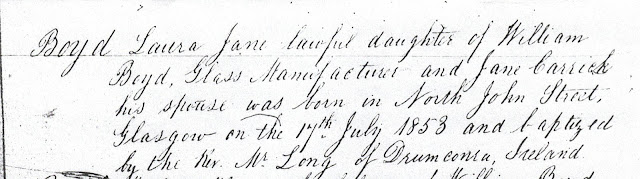 Boyd Laura Jane lawful daughter of William
Boyd, Glass Manufacturer and Jane Carrick
his spouse was born in North John Street,
Glasgow on the 17th July 1853 and baptized
by the Rev. Mr. Long of Drumconra, Ireland
William Boyd